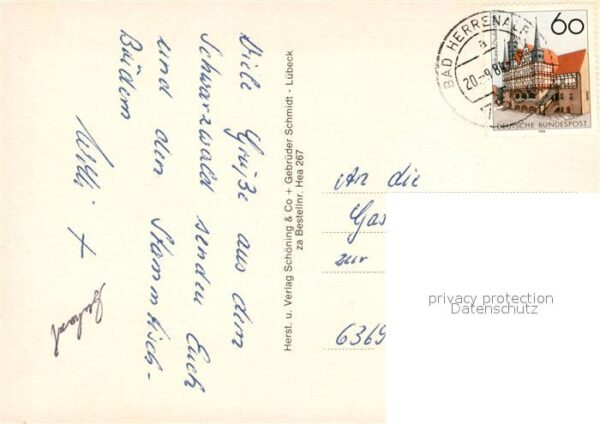 Viele Grüße aus dem
Schwarzwald senden Euch
und den Stammtisch-
Brüdern
Willi +
Herst. u. Verlag Schöning & Co + Gebrüder Schmidt - Lübeck
za Bestellnr. Hea 267
BAD HERRENALB
20.-9.84
60
DEUTSCHE BUNDESPOST
An die
Gas
zur
6369
privacy protection
Datenschutz